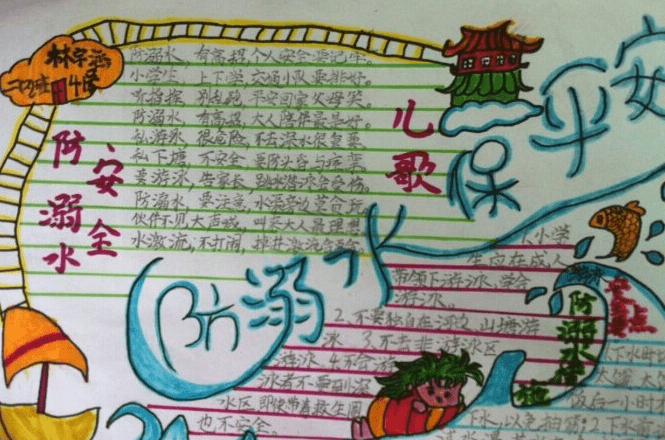 林字涵
二、2班
4号
防溺水
安全
儿歌
防溺水,有高招,个人安全要记牢。
小学生,上下学,交通小队要排好。
听指挥,别乱跑,平安回家父母笑。
防溺水,有高招,大人陪伴最是好。
私游泳,很危险,不去深水很重要。
私下塘,不安全,要防头昏与痉挛。
要游泳,告家长,
防溺水,要注意,水温
伙伴不见大声喊,叫来大人最理想
水激流,不打闹,
防溺水
保平安
1.小学
生应在成人
带领下游泳,学会
游泳。
2.不要独自在河边、山塘游
泳 3.不去非游泳区
游泳 4.不会游
泳者不要到深
水区,即使带着救生圈
也不安全。
防溺水措
施
安全
点
下水时
太饿、太
饭后一小时
下水,以免抽筋;2.下水前